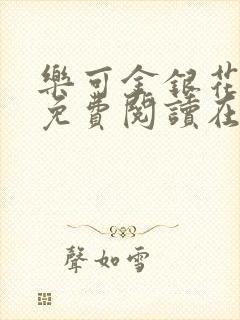 樂可金銀花
免費閱讀在
聲如雪